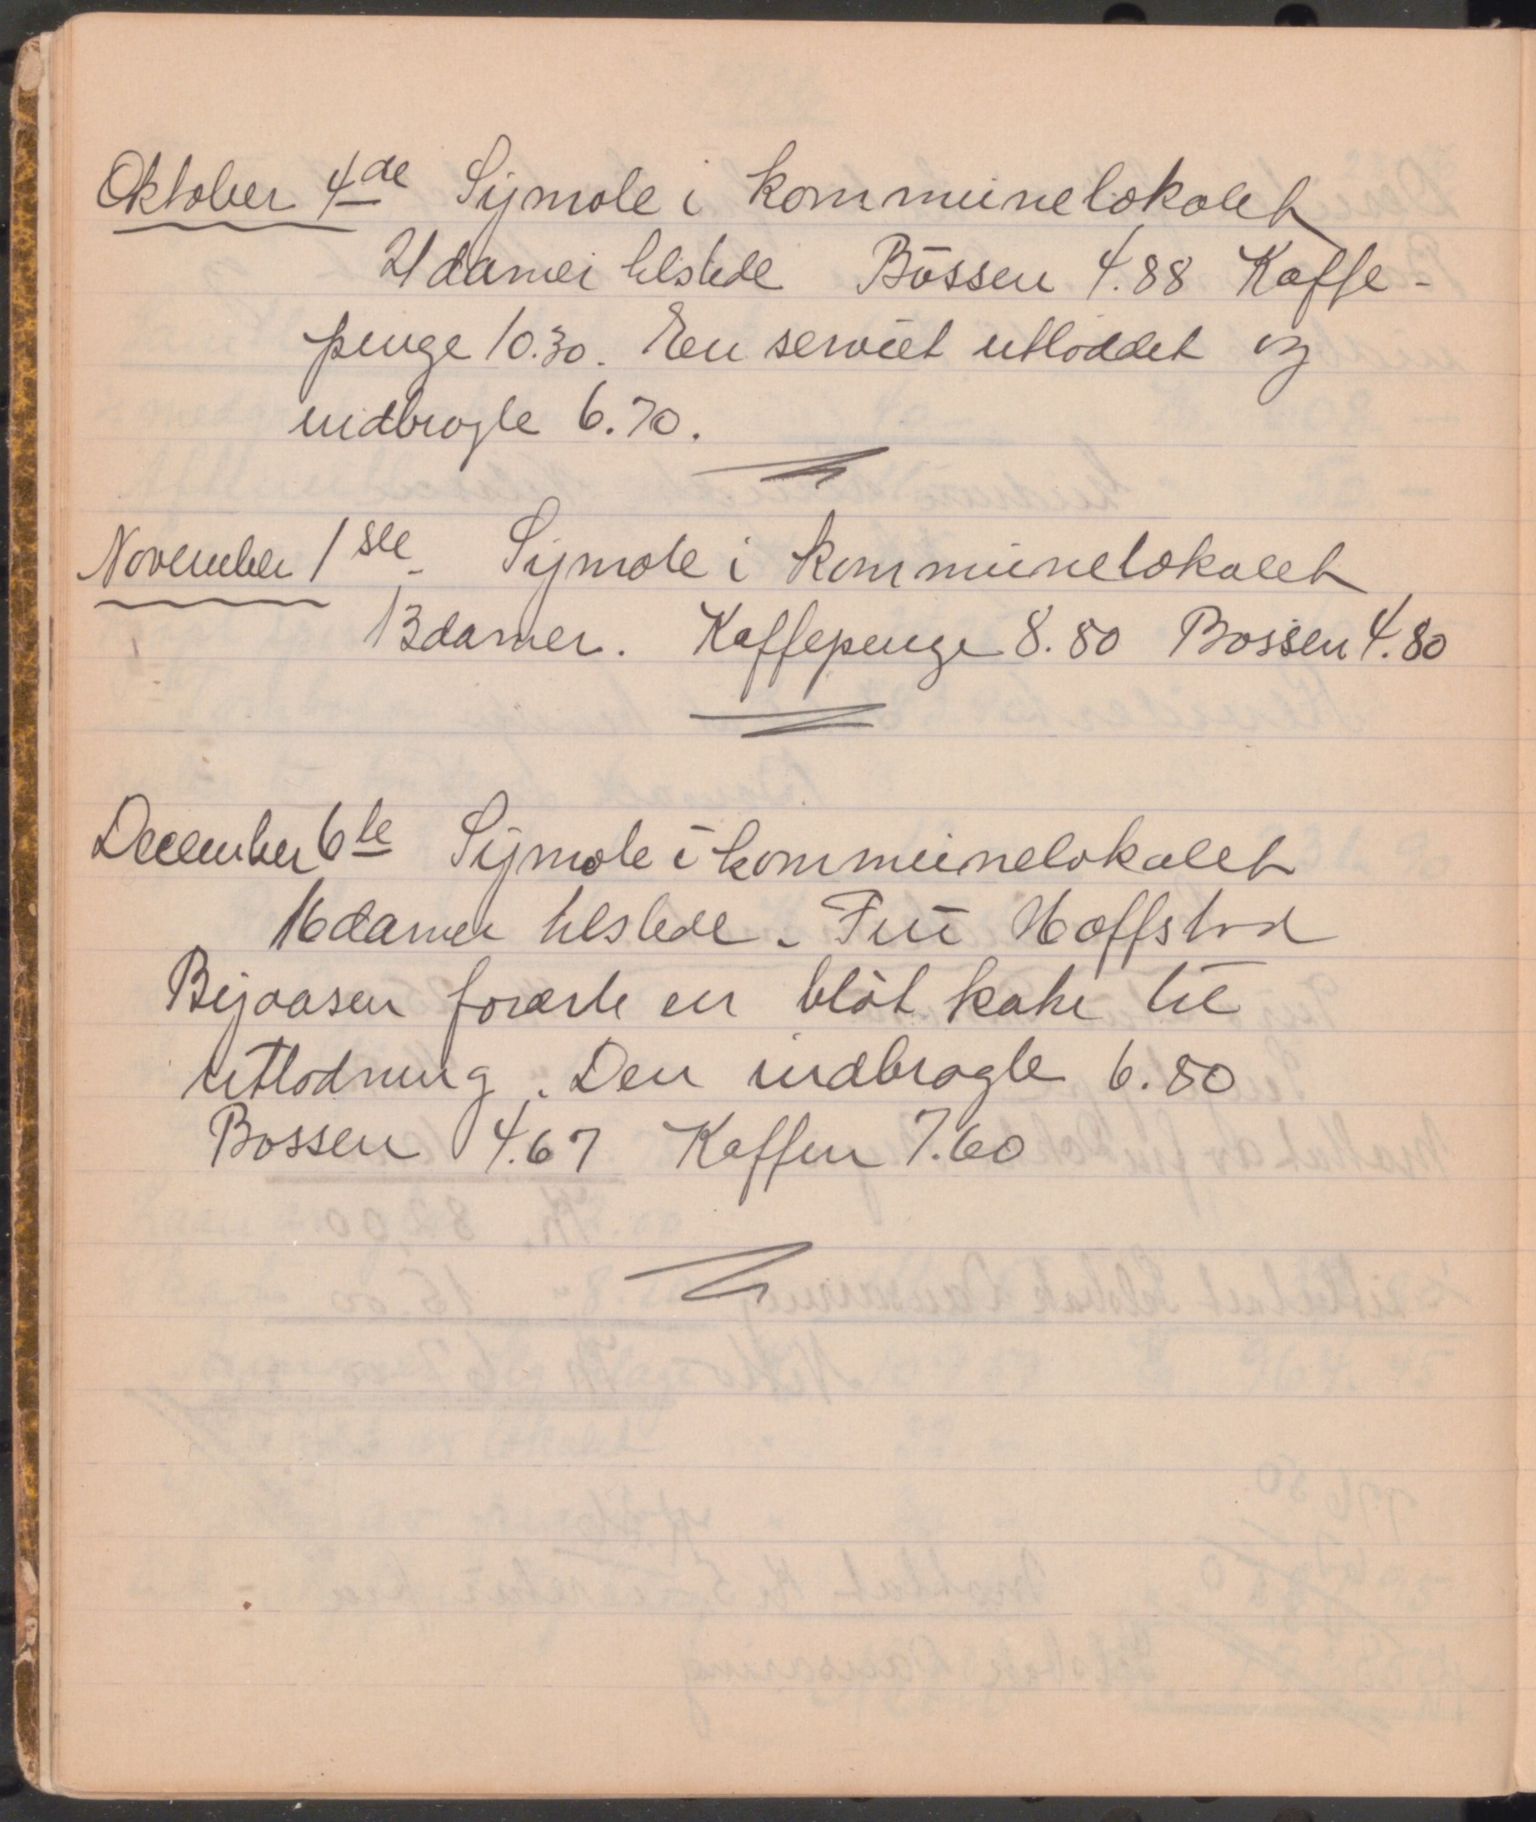 Oktober 4de Symøte i kommunelokalet
21 damer tilstede Bøssen 4.88 Kaffe-
penge 10.30. En serviet utloddet og
indbragte 6.70.
November 1ste. Symøte i kommunelokalet
13 damer. Kaffepenge 8.80 Bøssen 4.80
December 6te Symøte i kommunelokalet
16 damer tilstede. Fru Hoffstad
Byaasen forærte en bløt kake til
utlodning. Den indbragte 6.80
Bøssen 4.67 Kaffen 7.60